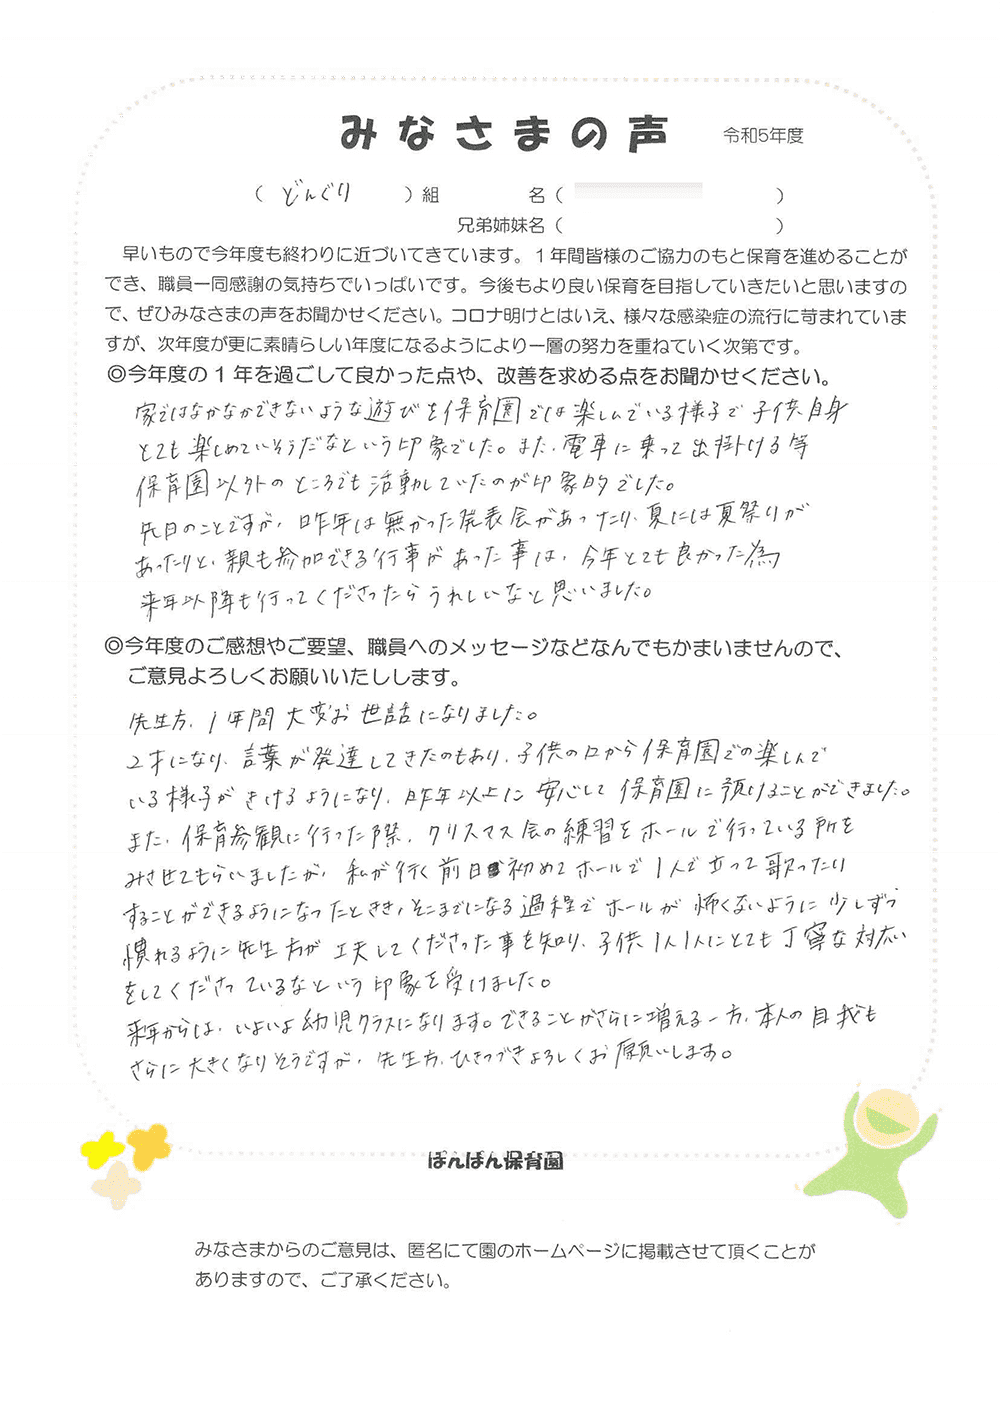 みなさまの声 令和5年度
（ どんぐり ）組 名（ ）
兄弟姉妹名（ ）
早いもので今年度も終わりに近づいてきています。１年間皆様のご協力のもと保育を進めることが
でき、職員一同感謝の気持ちでいっぱいです。今後もより良い保育を目指していきたいと思いますの
で、ぜひみなさまの声をお聞かせください。コロナ明けとはいえ、様々な感染症の流行に苛まれていま
すが、次年度が更に素晴らしい年度になるようにより一層の努力を重ねていく次第です。
◎今年度の１年を過ごして良かった点や、改善を求める点をお聞かせください。
家ではなかなかできないような遊びを保育園では楽しんでいる様子で子供自身
とても楽しめていそうだなという印象でした。また、電車に乗って出掛ける等
保育園以外のところでも活動していたのが印象的でした。
先日のことですが、昨年は無かった発表会があったり、夏には夏祭りが
あったりと、親も参加できる行事があった事は、今年とても良かった為
来年以降も行ってくださったらうれしいなと思いました。
◎今年度のご感想やご要望、職員へのメッセージなどなんでもかまいませんので、
ご意見よろしくお願いいたしします。
先生方、1年間大変お世話になりました。
2才になり、言葉が発達してきたのもあり、子供の口から保育園での楽しんで
いる様子がきけるようになり、昨年以上に安心して保育園に預けることができました。
また、保育参観に行った際、クリスマス会の練習をホールで行っている所を
みさせてもらいましたが、私が行く前日初めてホールで1人で立って歌ったり
することができるようになったときき、そこまでになる過程でホールが怖くないように少しずつ
慣れるように先生方が工夫してくださった事を知り、子供1人1人にとても丁寧な対応
をしてくださっているなという印象を受けました。
来年からは、いよいよ幼児クラスになります。できることがさらに増える一方、本人の自我も
さらに大きくなりそうですが、先生方、ひきつづきよろしくお願いします。
ぽんぽん保育園
みなさまからのご意見は、匿名にて園のホームページに掲載させて頂くことが
ありますので、ご了承ください。